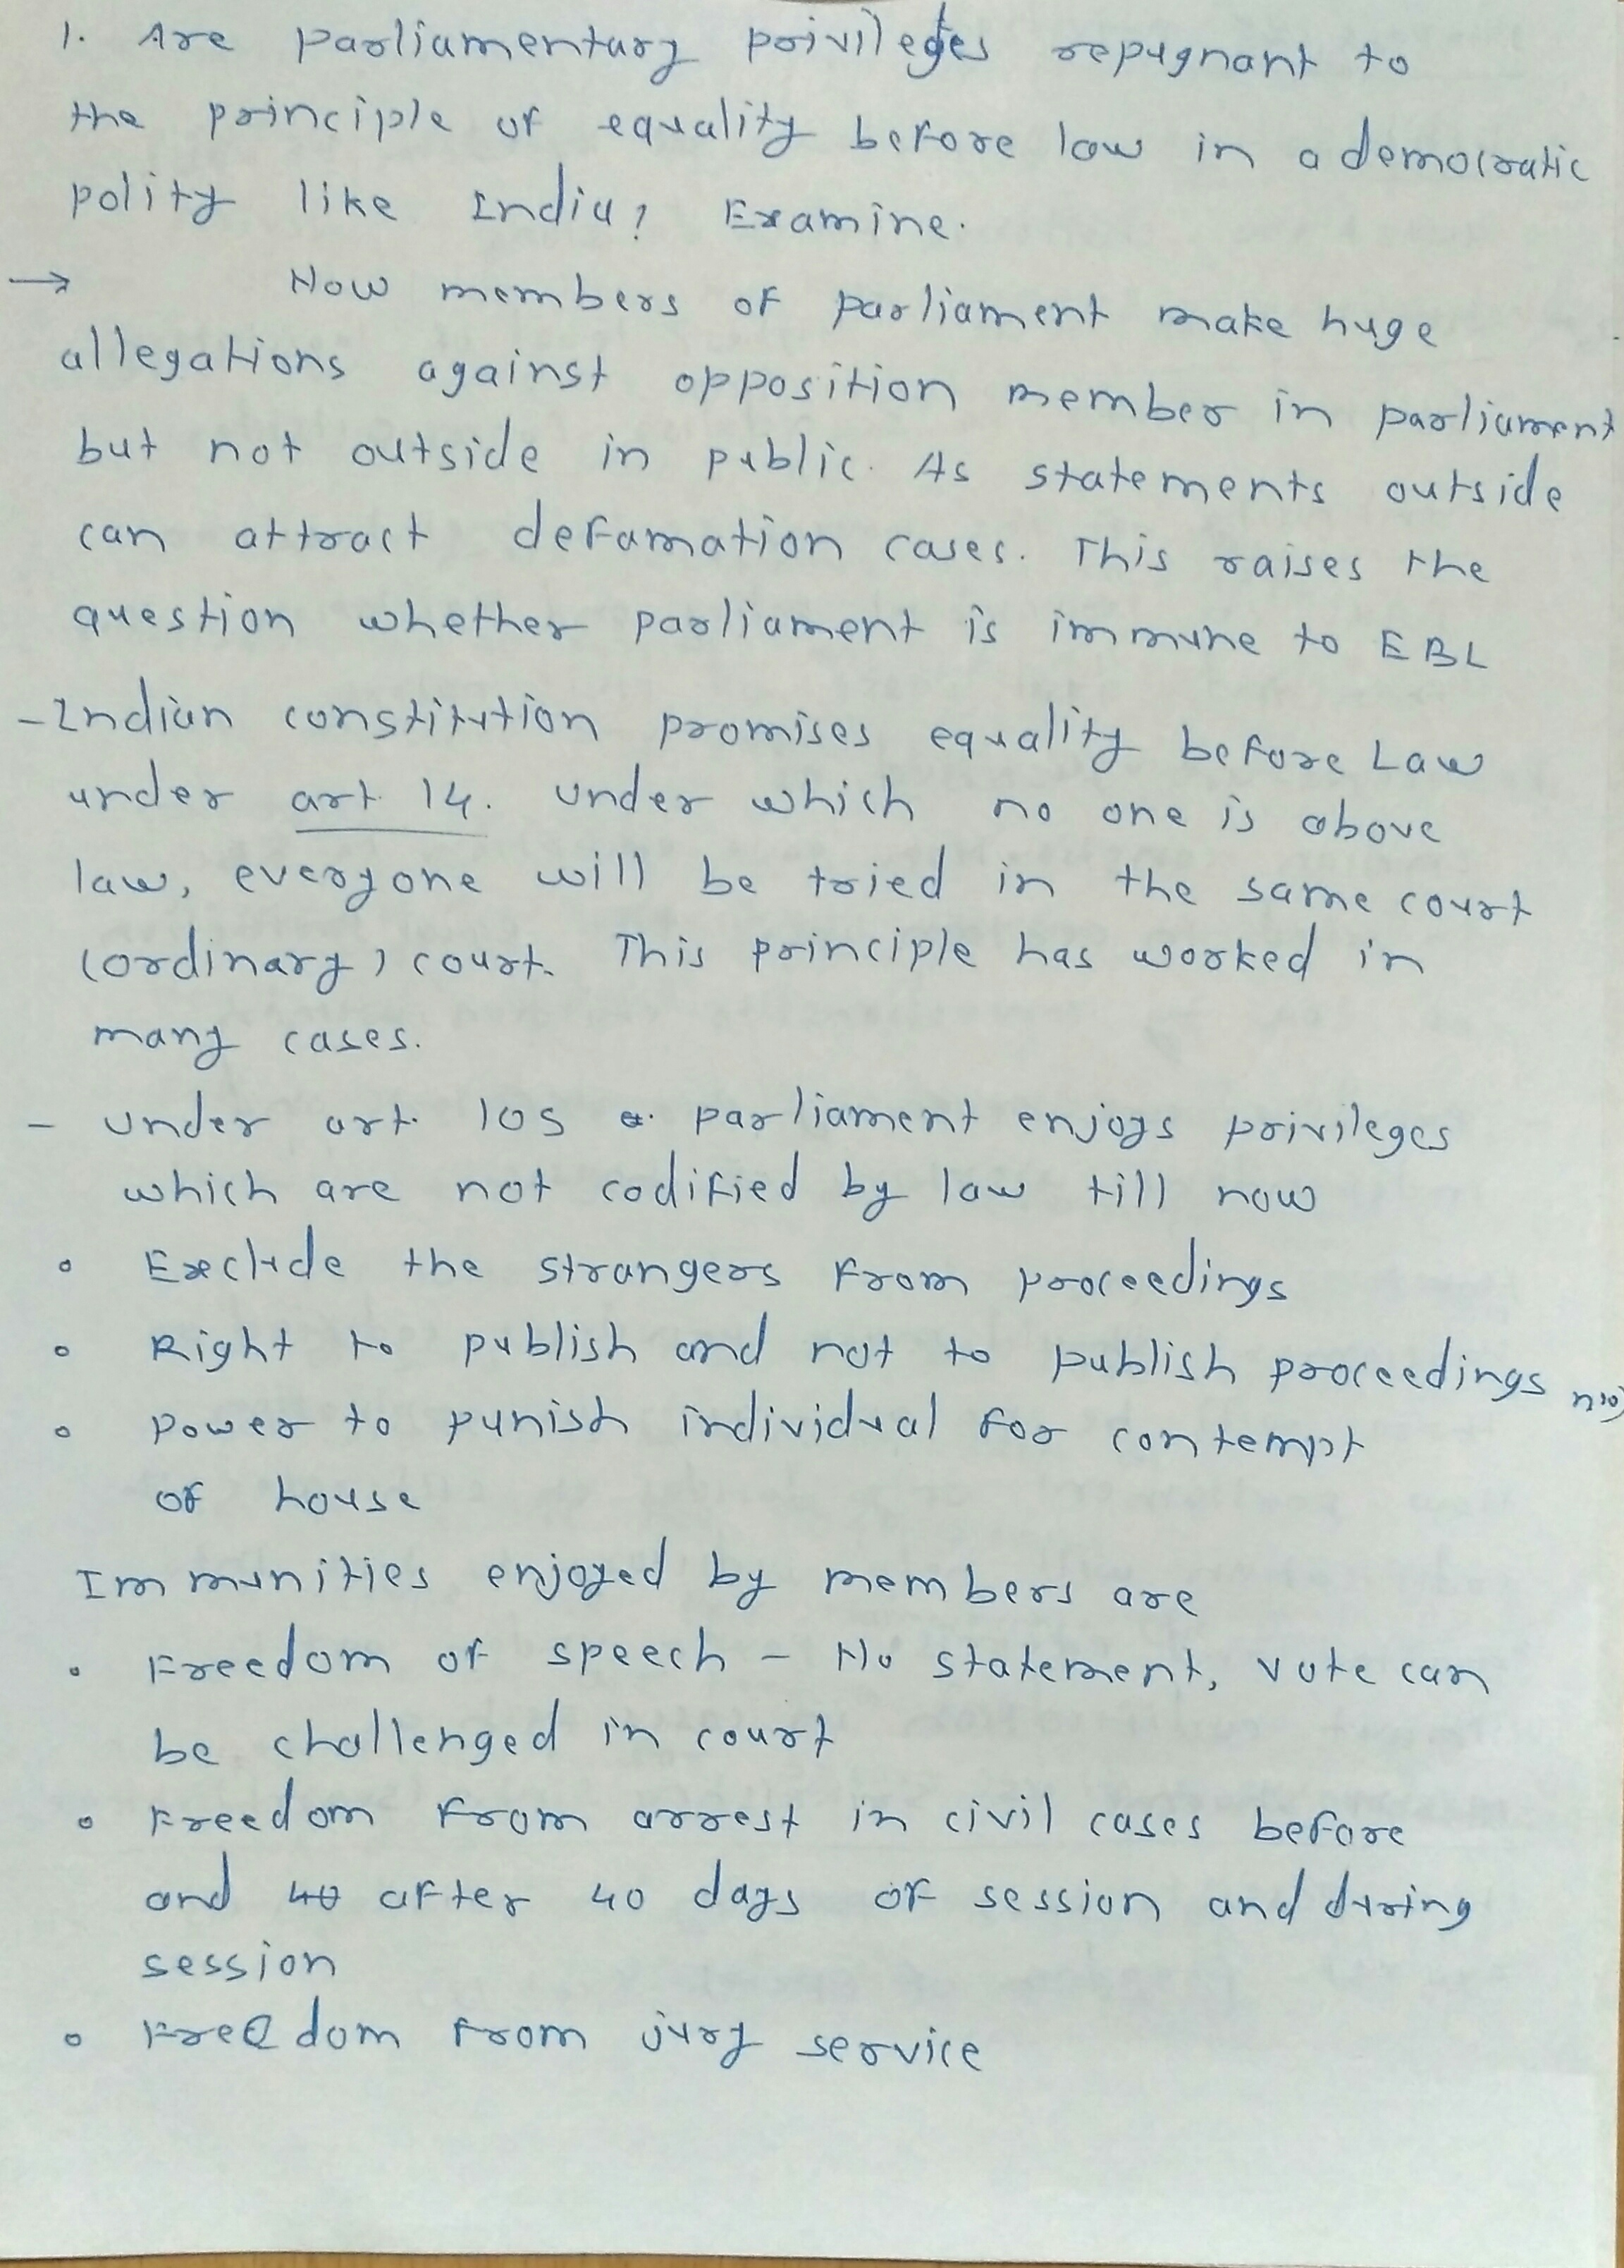 1. Are parliamentary privileges repugnant to
the principle of equality before law in a democratic
polity like India? Examine.
→ How members of parliament make huge
allegations against opposition member in parliament
but not outside in public. As statements outside
can attract defamation cases. This raises the
question whether parliament is immune to EBL
- Indian constitution promises equality before Law
under art 14. Under which no one is above
law, everyone will be tried in the same court
(ordinary) court. This principle has worked in
many cases.
- Under art. 105 parliament enjoys privileges
which are not codified by law till now
o Exclude the strangers from proceedings
o Right to publish and not to publish proceedings
o Power to punish individual for contempt
of house
Immunities enjoyed by members are
o Freedom of speech - No statement, vote can
be challenged in court
o Freedom from arrest in civil cases before
and 40 after 40 days of session and during
session
o Freedom from jury service